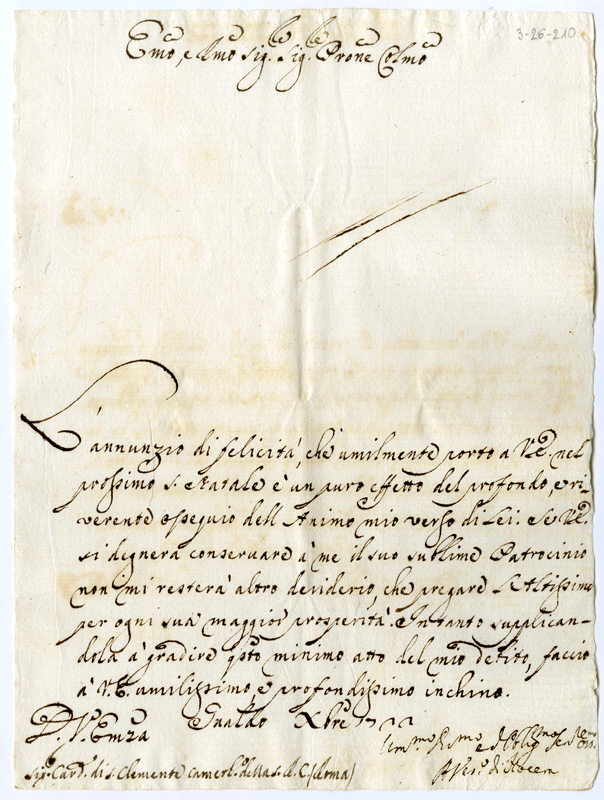 3-26-210
Emo, e Rmo Sig.re Sig.re Prone Colmo
L'annunzio di felicità, che umilmente porto a V.E. nel
prossimo S. Natale è un puro effetto del profondo, e ri-
verente ossequio dell'Animo mio verso di Lei. Se V.E.
si degnerà conservare à me il suo sublime Patrocinio
non mi resterà altro desiderio, che pregare l'Altissimo
per ogni sua maggior prosperità. In tanto supplican-
dola à gradire qsto minimo atto del mio debito, faccio
à V.E. umilissimo, e profondissimo inchino.
D. V. Emza Gualdo Xbre
Ummo
Sig. Card. di S. Clemente Camerl. della S. R. C. (Roma)